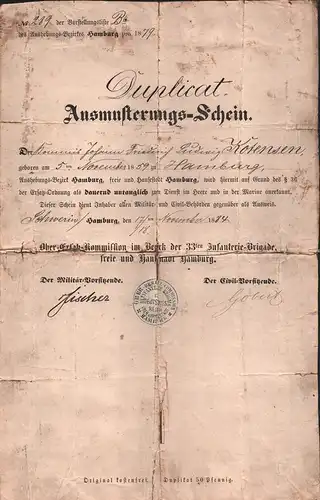 No. 209 der Vorstellungsliste B
des Aushebungs-Bezirkes Hamburg pro 1879.
Duplicat.
Ausmusterungs-Schein.
Der Commis Johann Friedrich Ludwig
geboren am 5ten November 1859 zu Hamburg
Aushebungs-Bezirk Hamburg, freie und Hansestadt Hamburg, wird hiermit auf Grund des § 36
der Ersatz-Ordnung als dauernd untauglich zum Dienst im Heere und in der Marine ausgemustert.
Dieser Schein dient Inhaber allen Militär- und Civil-Behörden gegenüber als Ausweis.
Schwerin Hamburg, den November 1884.
Ober-Ersatz-Kommission im Bezirk der 33ten Infanterie-Brigade,
freie und Hansestadt Hamburg.
Der Militär-Vorsitzende. Der Civil-Vorsitzende.
Fischer
Original kostenfrei. Duplikat 50 Pfennig.